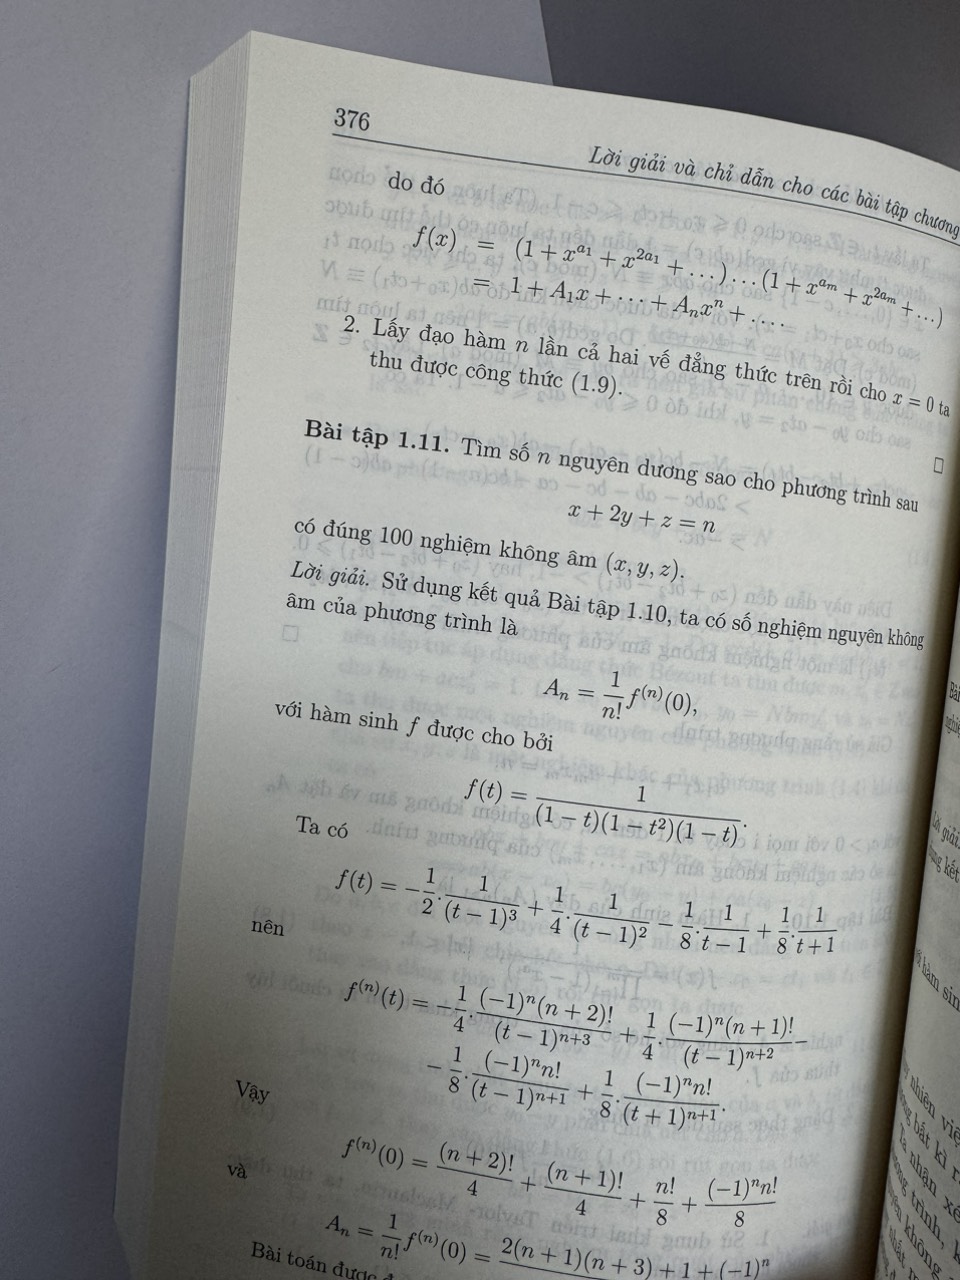 376
Lời giải và chỉ dẫn cho các bài tập chương
do đó
f(x) = (1 + x^{a_1} + x^{2a_1} + ...) ... (1 + x^{a_m} + x^{2a_m} + ...)
= 1 + A_1x + ... + A_nx^n + ....
2. Lấy đạo hàm n lần cả hai vế đẳng thức trên rồi cho x = 0 ta
thu được công thức (1.9).
□
Bài tập 1.11. Tìm số n nguyên dương sao cho phương trình sau
x + 2y + z = n
có đúng 100 nghiệm không âm (x, y, z).
Lời giải. Sử dụng kết quả Bài tập 1.10, ta có số nghiệm nguyên không
âm của phương trình là
A_n = \frac{1}{n!} f^{(n)}(0),
với hàm sinh f được cho bởi
f(t) = \frac{1}{(1 - t)(1 - t^2)(1 - t)}.
Ta có
f(t) = -\frac{1}{2}.\frac{1}{(t - 1)^3} + \frac{1}{4}.\frac{1}{(t - 1)^2} - \frac{1}{8}.\frac{1}{t - 1} + \frac{1}{8}.\frac{1}{t + 1}
nên
f^{(n)}(t) = -\frac{1}{4}.\frac{(-1)^n(n + 2)!}{(t - 1)^{n+3}} + \frac{1}{4}.\frac{(-1)^n(n + 1)!}{(t - 1)^{n+2}} -
-\frac{1}{8}.\frac{(-1)^n n!}{(t - 1)^{n+1}} + \frac{1}{8}.\frac{(-1)^n n!}{(t + 1)^{n+1}}.
Vậy
f^{(n)}(0) = \frac{(n + 2)!}{4} + \frac{(n + 1)!}{4} + \frac{n!}{8} + \frac{(-1)^n n!}{8}
và
A_n = \frac{1}{n!} f^{(n)}(0) = 2(n + 1)(n + 3) + 1 + (-1)^n
Bài toán được